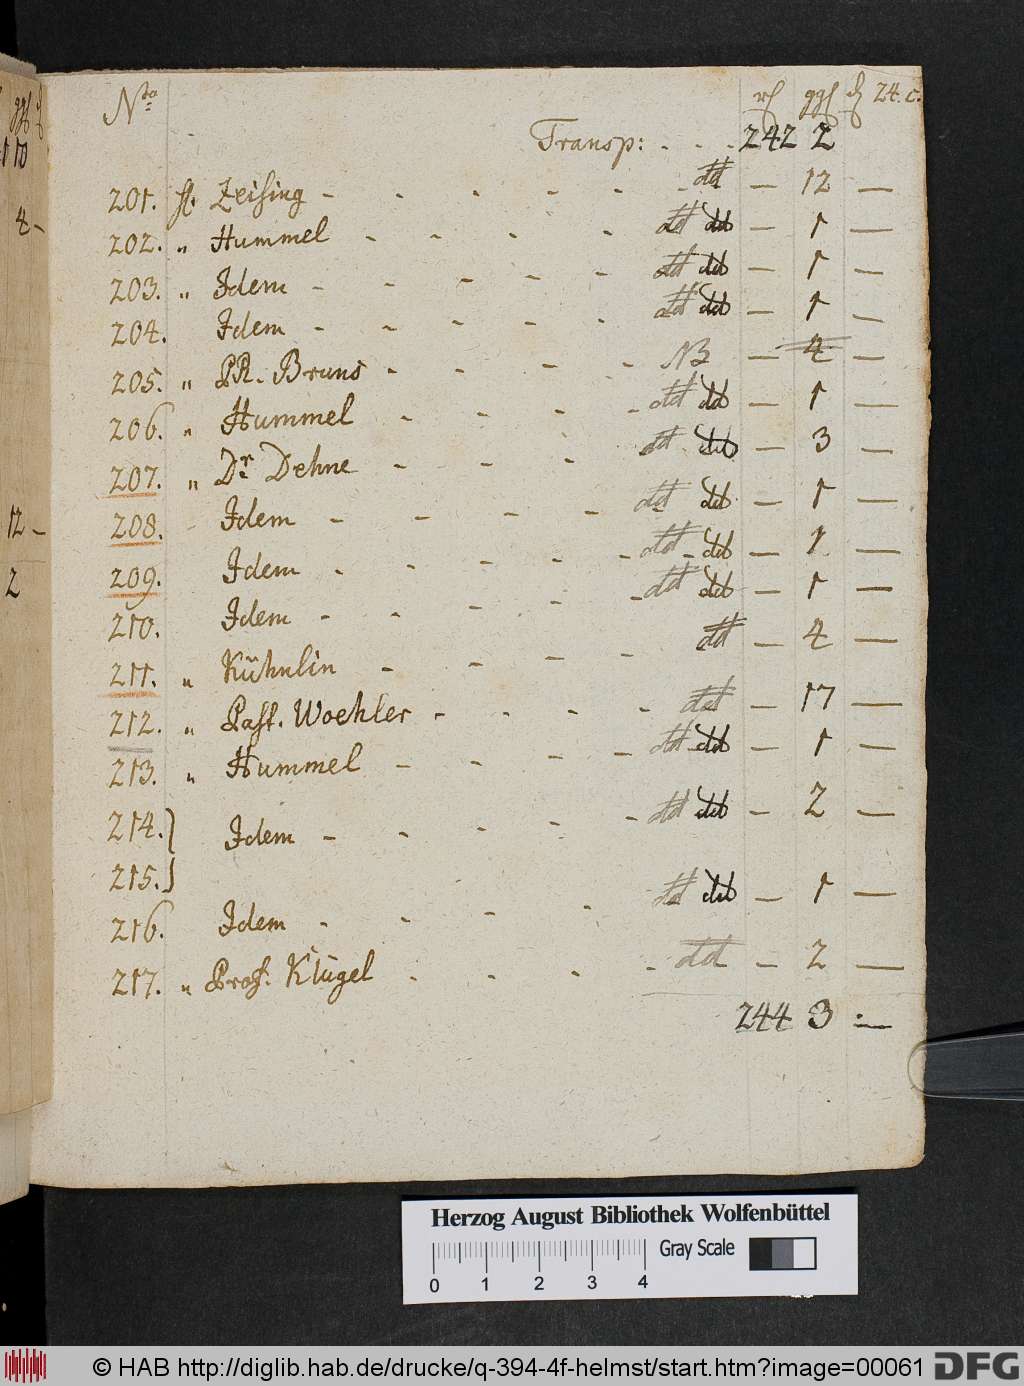 No. ggl 24. c.
Transp: . . . 242 2
201. H. Zeising - - - - - - dd — 12 —
202. „ Hummel - - - - dd ddt — 1 —
203. „ Idem - - - - - dd ddt — 1 —
204. Idem - - - - - dd ddt — 1 —
205. „ PR. Bruns - - - - NB — 4 —
206. „ Hummel - - - - dd ddt — 1 —
207. „ Dr Dehne - - - dd ddt — 3 —
208. Idem - - - - dd ddt — 1 —
209. Idem - - - - dd ddt — 1 —
210. Idem - - - - - dd ddt — 1 —
211. „ Kühnlin - - - - dd — 4 —
212. „ Past. Woehler - - - - dd — 17 —
213. „ Hummel - - - - dd ddt — 1 —
214. } Idem - - - - - dd ddt — 2 —
215. }
216. Idem - - - - dd ddt — 1 —
217. „ Prof. Klügel - - - - dd — 2 —
244 3 : —
10
4 -
12 -
2
Herzog August Bibliothek Wolfenbüttel
Gray Scale
0 1 2 3 4
© HAB http://diglib.hab.de/drucke/q-394-4f-helmst/start.htm?image=00061 DFG